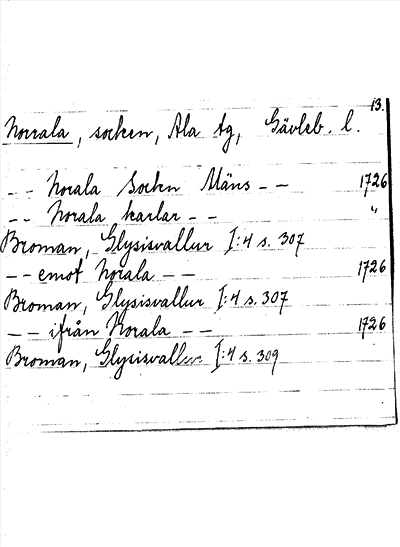 13.
Norrala, socken, Ala tg, Gävleb. l.
-- Norala Sockn Mäns -- 1726
-- Norala karlar -- "
Broman, Glysisvallur I:4 s. 307
-- emot Norala -- 1726
Broman, Glysisvallur I:4 s. 307
-- ifrån Norala -- 1726
Broman, Glysisvallur I:4 s. 309